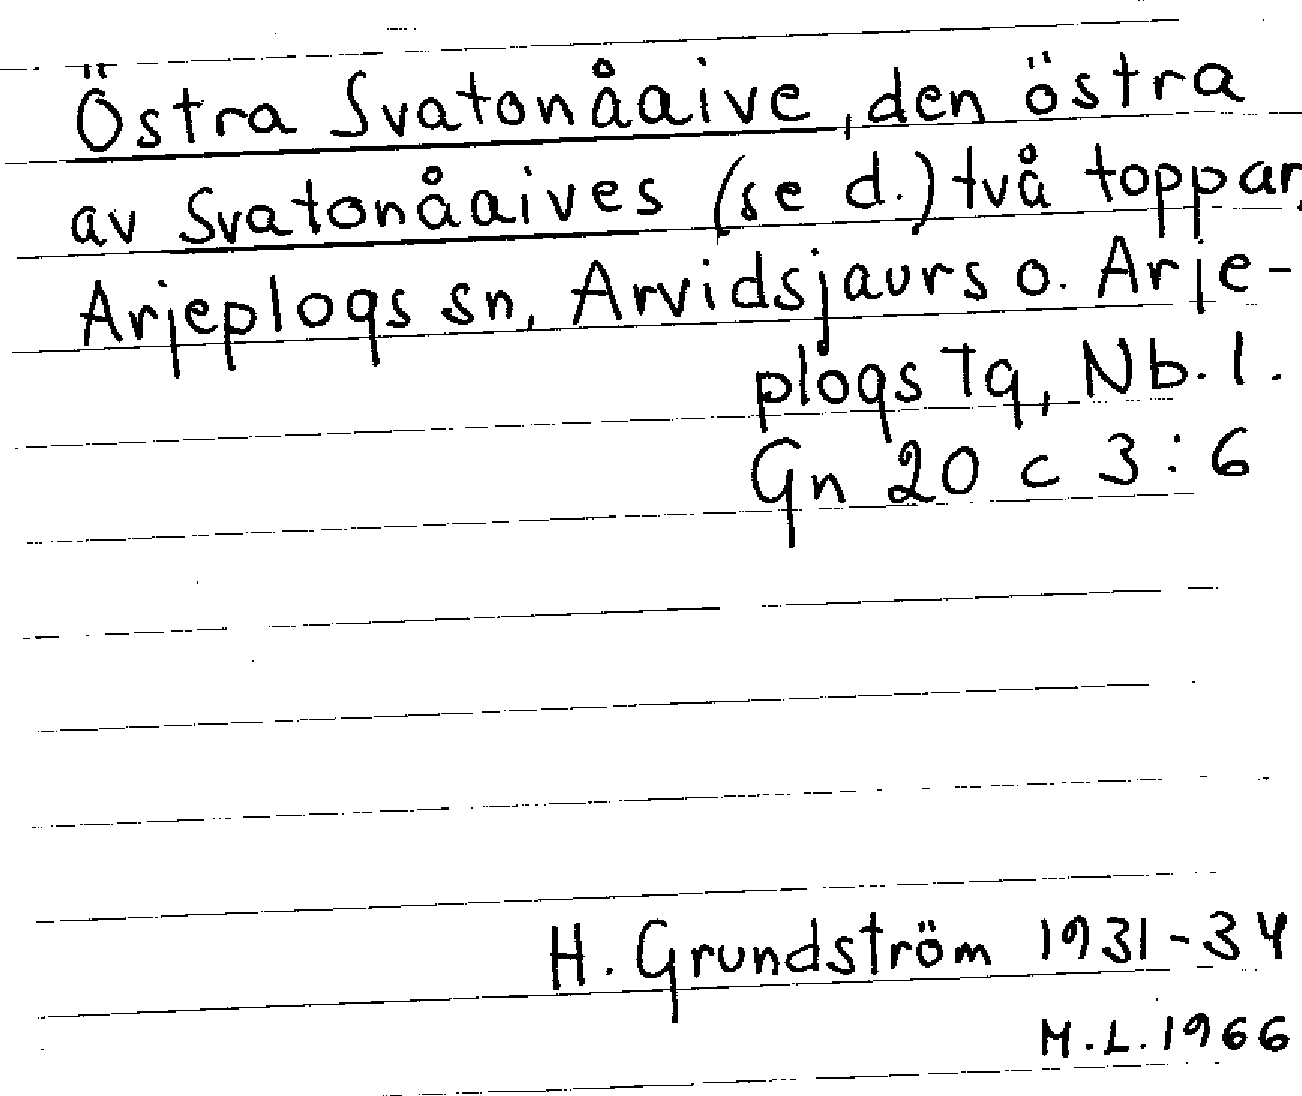 Östra Svatonåaive, den östra
av Svatonåaives (se d.) två toppar,
Arjeplogs sn, Arvidsjaurs o. Arje-
plogs Tg, Nb. l.
Gn 20 c 3:6
H. Grundström 1931-34
M.L. 1966